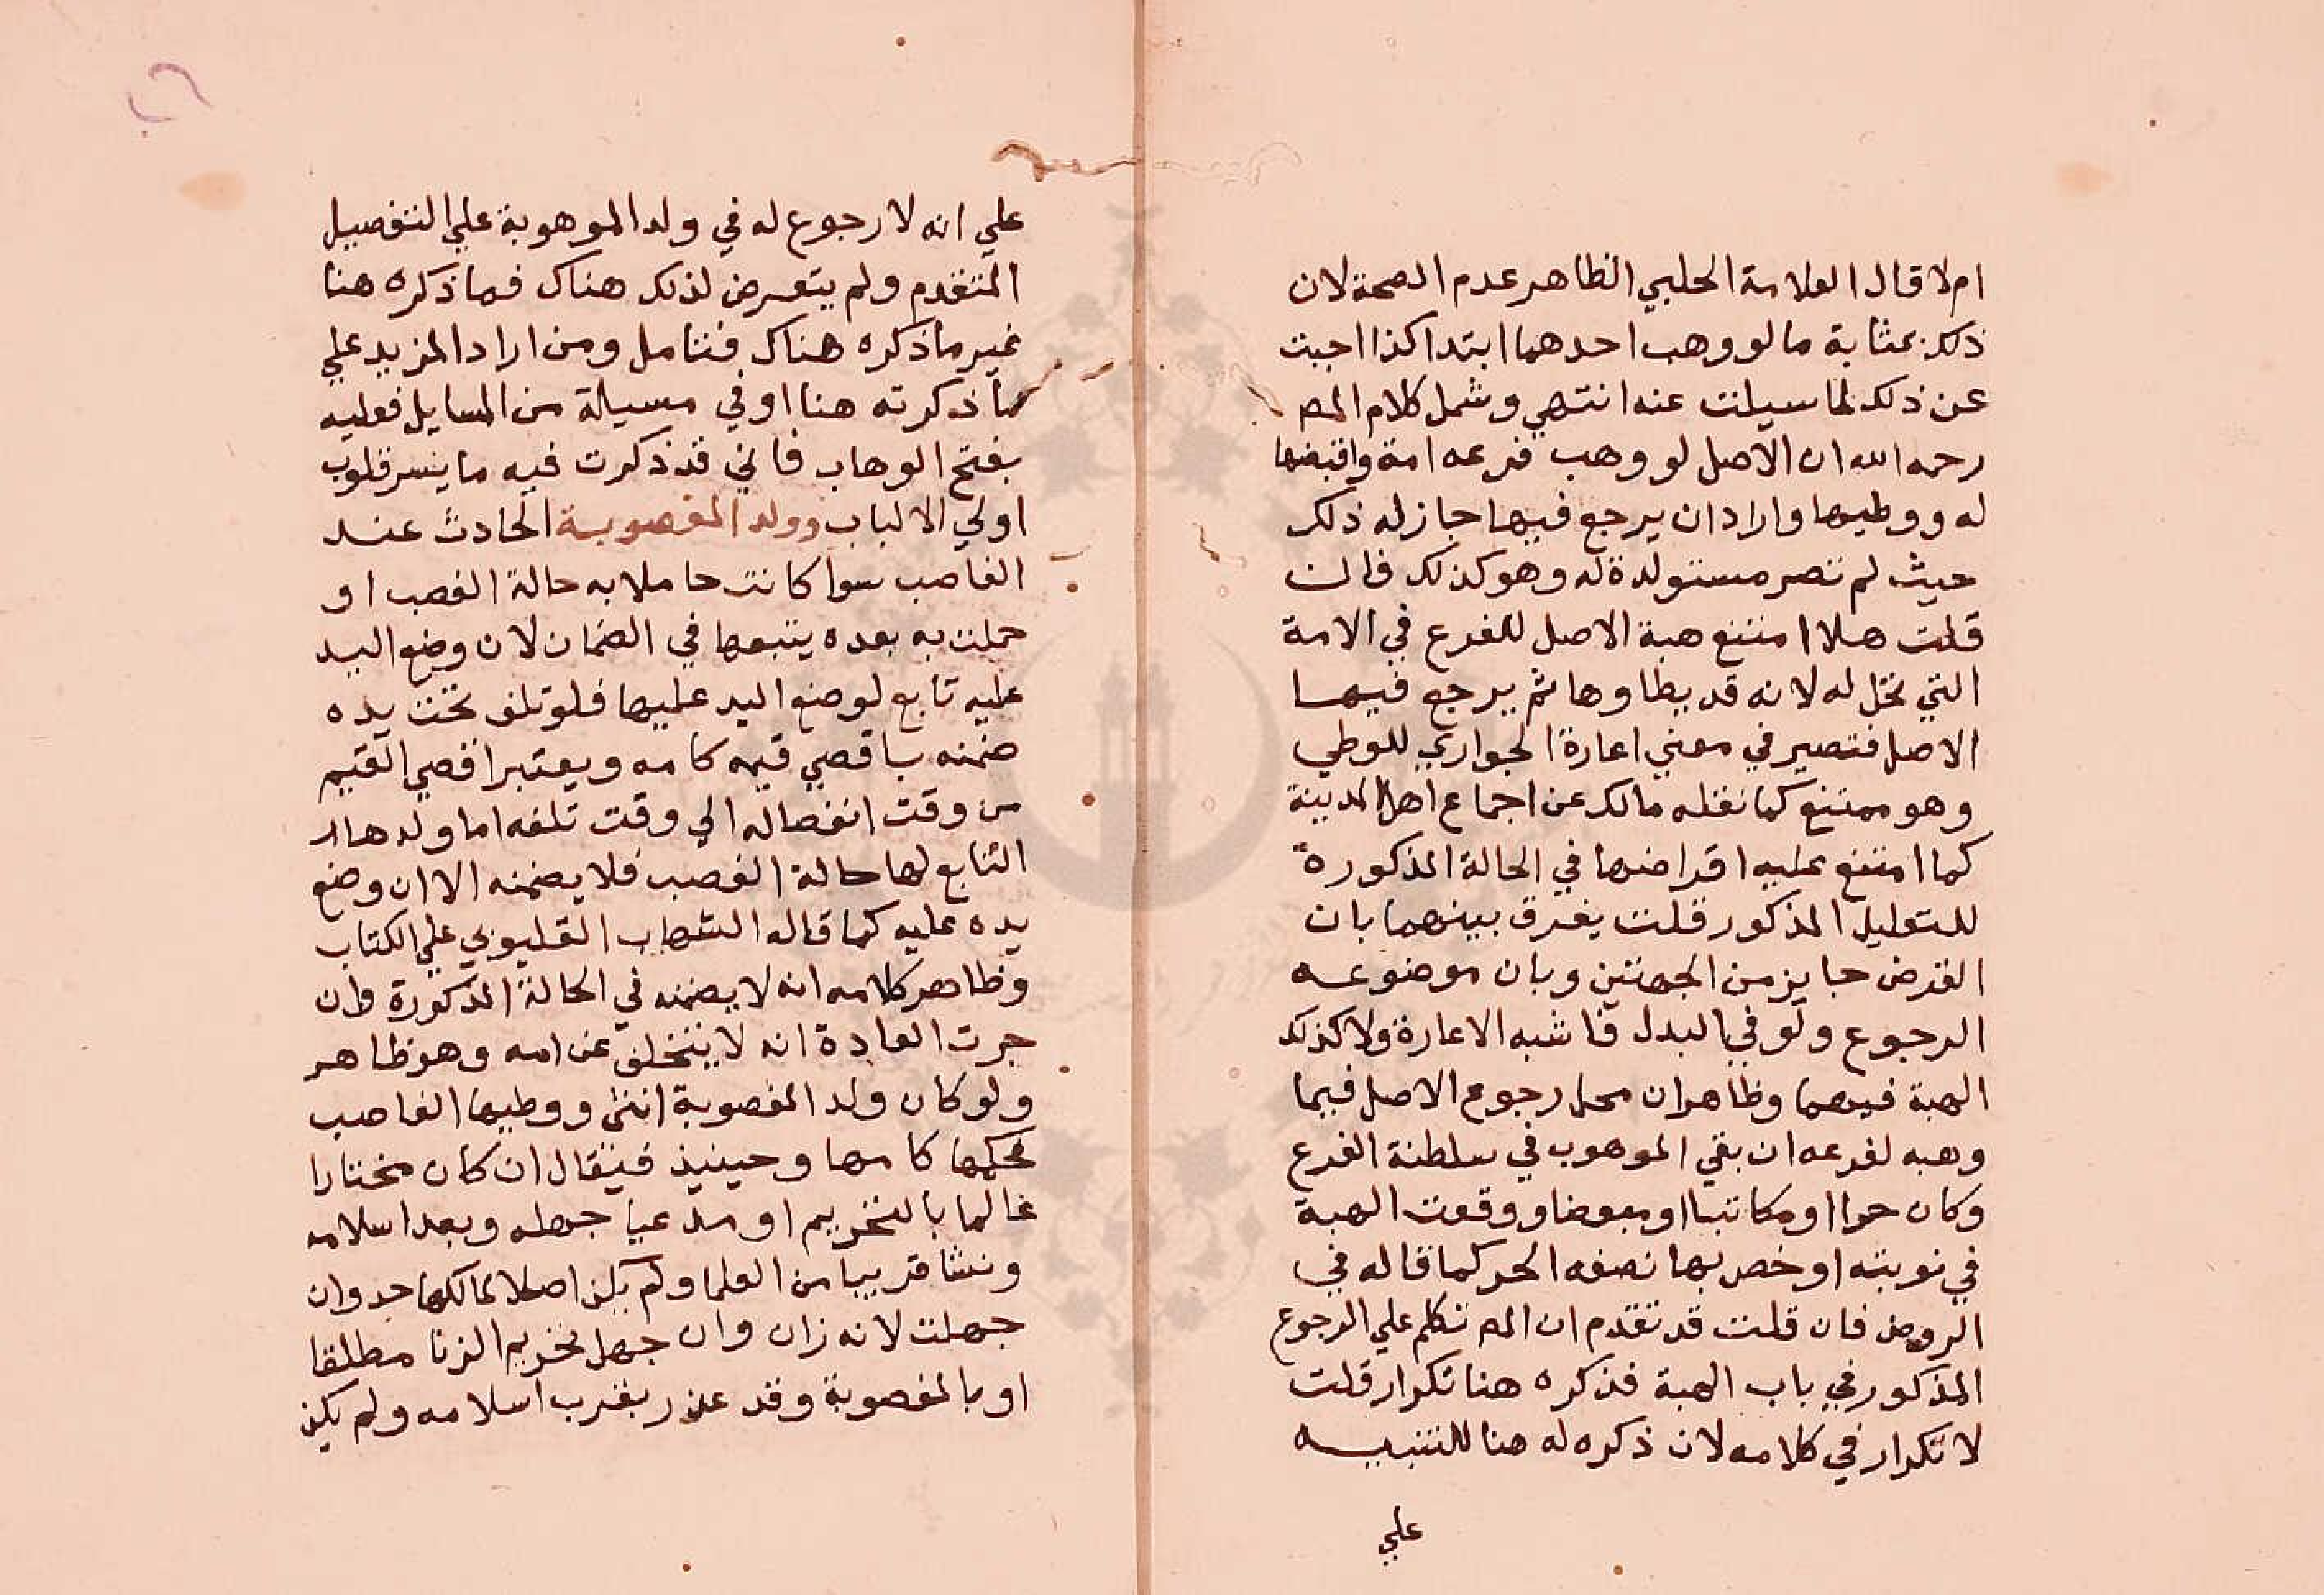 ام لا قال العلامة الحلبي الظاهر عدم الصحة لان
ذلك بمثابة ما لو وهب احدهما ابتدا كذا اجبت
عن ذلك لما سيلت عنه انتهي وشمل كلام المص
رحمه الله ان الاصل لو وهب فرعه امة واقبضها
له ووطيها واراد ان يرجع فيها جاز له ذلك
حيث لم تصر مستولدة له وهو كذلك فان
قلت هلا امتنع هبة الاصل للفرع في الامة
التي تحل له لانه قد يطاوها ثم يرجع فيها
الاصل فتصير في معني اعارة الجواري للوطي
وهو ممتنع كما نقله مالك عن اجماع اهل المدينة
كما امتنع عليه اقراضها في الحالة المذكورة
للتعليل المذكور قلت يفرق بينهما بان
القرض جايز من الجهتين وبان موضوعه
الرجوع ولو في البدل فاشبه الاعارة ولا كذلك
الهبة فيهما وظاهر ان محل رجوع الاصل فيما
وهبه لفرعه ان بقي الموهوب في سلطنة الفرع
وكان حرا او مكاتبا او مبعضا ووقعت الهبة
في نوبته او خص بها نصفه الحر كما قاله في
الروض فان قلت قد تقدم ان المص تكلم علي الرجوع
المذكور في باب الهبة فذكره هنا تكرار قلت
لا تكرار في كلامه لان ذكره له هنا للتنبيه
علي
علي انه لا رجوع له في ولد الموهوبة علي التفصيل
المتقدم ولم يتعرض لذلك هناك فما ذكره هنا
غير ما ذكره هناك فتامل ومن اراد المزيد علي
ما ذكرته هنا او في مسيلة من المسايل فعليه
بفتح الوهاب فاني قد ذكرت فيه ما يسر قلوب
اولي الالباب وولد المغصوبة الحادث عند
الغاصب سوا كانت حاملا به حالة الغصب او
حملت به بعده يتبعها في الضمان لان وضع اليد
عليه تابع لوضع اليد عليها فلو تلف تحت يده
ضمنه باقصي قيمه كامه ويعتبر اقصي القيم
من وقت انفصاله الي وقت تلفه اما ولدها
التابع لها حالة الغصب فلا يضمنه الا ان وضع
يده عليه كما قاله الشهاب القليوبي علي الكتاب
وظاهر كلامه انه لا يضمنه في الحالة المذكورة وان
جرت العادة انه لا يتخلف عن امه وهو ظاهر
ولو كان ولد المغصوبة انثي ووطيها الغاصب
فحكمها كامها وحينيذ فيقال ان كان مختارا
عالما بالتحريم او مدعيا جهله وبعد اسلامه
ونشا قريبا من العلما ولم يكن اصلا لمالكها حد وان
جهلت لانه زان وان جهل تحريم الزنا مطلقا
او بالمغصوبة وقد عذر بقرب اسلامه ولم يكن